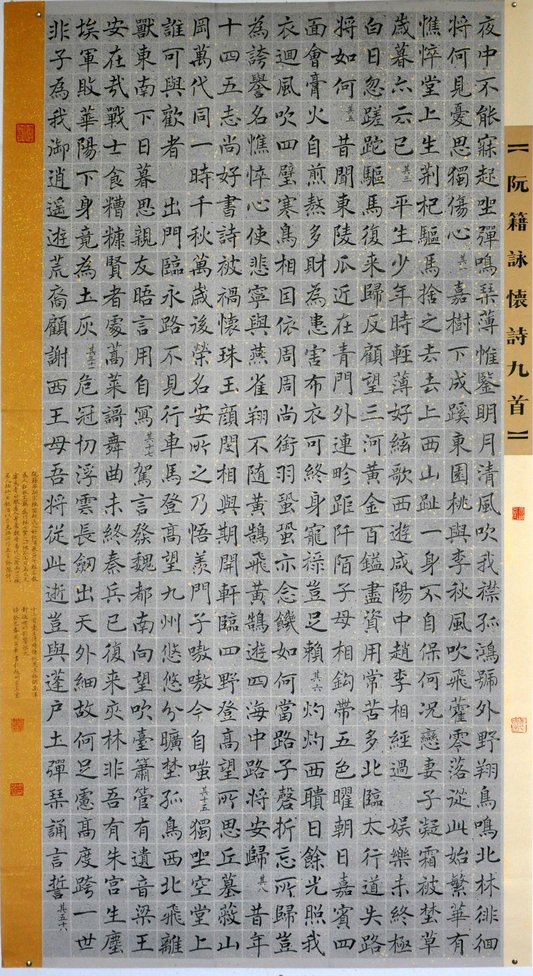 【阮籍詠懷詩九首】
夜中不能寐起坐彈鳴琴薄惟鑒明月清風吹我襟孤鴻號外野翔鳥鳴北林徘徊
將何見憂思獨傷心 其一 嘉樹下成蹊東園桃與李秋風吹飛藿零落從此始繁華有
憔悴堂上生荊杞驅馬捨之去去上西山趾一身不自保何況戀妻子凝霜被埜草
歲暮亦云已 其三 平生少年時輕薄好絃歌西遊咸陽中趙李相經過娛樂未終極
白日忽蹉跎驅馬復來歸反顧望三河黃金百鎰盡資用常苦多北臨太行道失路
將如何 其五 昔聞東陵瓜近在青門外連畛距阡陌子母相鉤帶五色曜朝日嘉賓四
面會膏火自煎熬多財為患害布衣可終身寵祿豈足賴 其六 灼灼西隤日餘光照我
衣迴風吹四壁寒鳥相因依周周尚銜羽蛩蛩亦念饑如何當路子磬折忘所歸豈
為誇譽名憔悴心使悲寧與燕雀翔不隨黃鵠飛黃鵠遊四海中路將安歸 其八 昔年
十四五志尚好書詩被禍懷珠玉顏閔相與期開軒臨四野登高望所思丘墓蔽山
岡萬代同一時千秋萬歲後榮名安所之乃悟羨門子噭噭今自嗤 其十五 獨坐空堂上
誰可與歡者出門臨永路不見行車馬登高望九州悠悠分曠埜孤鳥西北飛離
獸東南下日暮思親友晤言用自寫 其十七 駕言發魏都南向望吹臺簫管有遺音梁王
安在哉戰士食糟糠賢者處蒿萊謌舞曲未終秦兵已復來夾林非吾有朱宮生塵
埃軍敗華陽下身竟為土灰 其三十一 危冠切浮雲長劒出天外細故何足慮高度跨一世
非子為我御逍遙遊荒裔顧謝西王母吾將從此逝豈與蓬戶士彈琴誦言誓 其五八